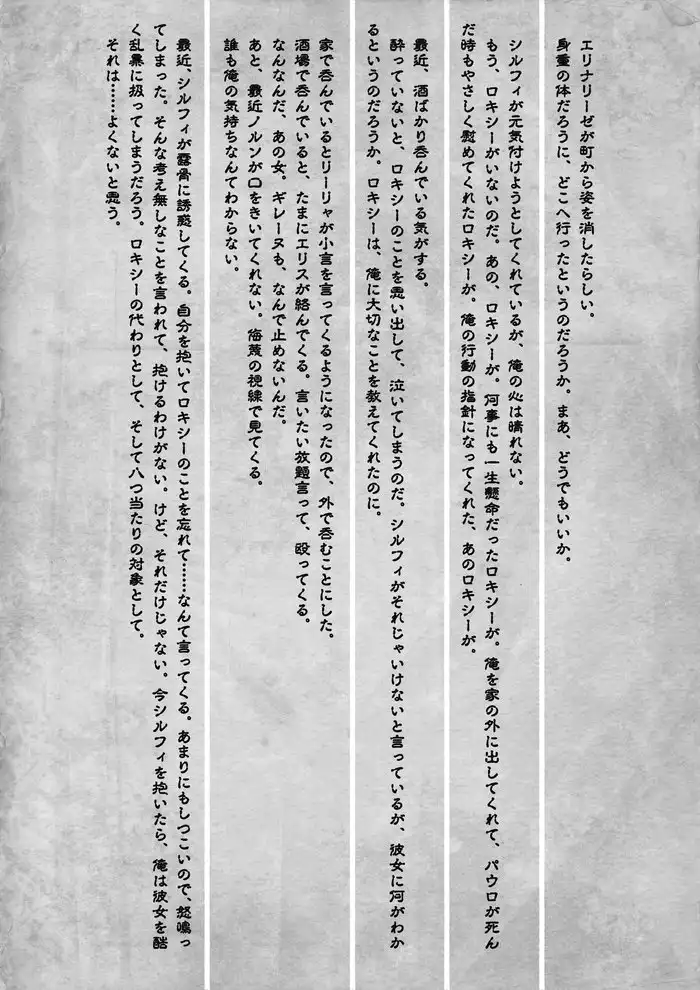 エリナリーゼが町から姿を消したらしい。
身重の体だろうに、どこへ行ったというのだろうか。まあ、どうでもいいか。
シルフィが元気付けようとしてくれているが、俺の心は晴れない。
もう、ロキシーがいないのだ。あの、ロキシーが。何事にも一生懸命だったロキシーが。俺を家の外に出してくれて、パウロが死ん
だ時もやさしく慰めてくれたロキシーが。俺の行動の指針になってくれた、あのロキシーが。
最近、酒ばかり呑んでいる気がする。
酔っていないと、ロキシーのことを思い出して、泣いてしまうのだ。シルフィがそれじゃいけないと言っているが、彼女に何がわか
るというのだろうか。ロキシーは、俺に大切なことを教えてくれたのに。
家で呑んでいるとリーリャが小言を言ってくるようになったので、外で呑むことにした。
酒場で呑んでいると、たまにエリスが絡んでくる。言いたい放題言って、殴ってくる。
なんなんだ、あの女。ギレーヌも、なんで止めないんだ。
あと、最近ノルンが口をきいてくれない。侮蔑の視線で見てくる。
誰も俺の気持ちなんてわからない。
最近、シルフィが露骨に誘惑してくる。自分を抱いてロキシーのことを忘れて……なんて言ってくる。あまりにもしつこいので、怒鳴っ
てしまった。そんな考え無しなことを言われて、抱けるわけがない。けど、それだけじゃない。今シルフィを抱いたら、俺は彼女を酷
く乱暴に扱ってしまうだろう。ロキシーの代わりとして、そして八つ当たりの対象として。
それは……よくないと思う。